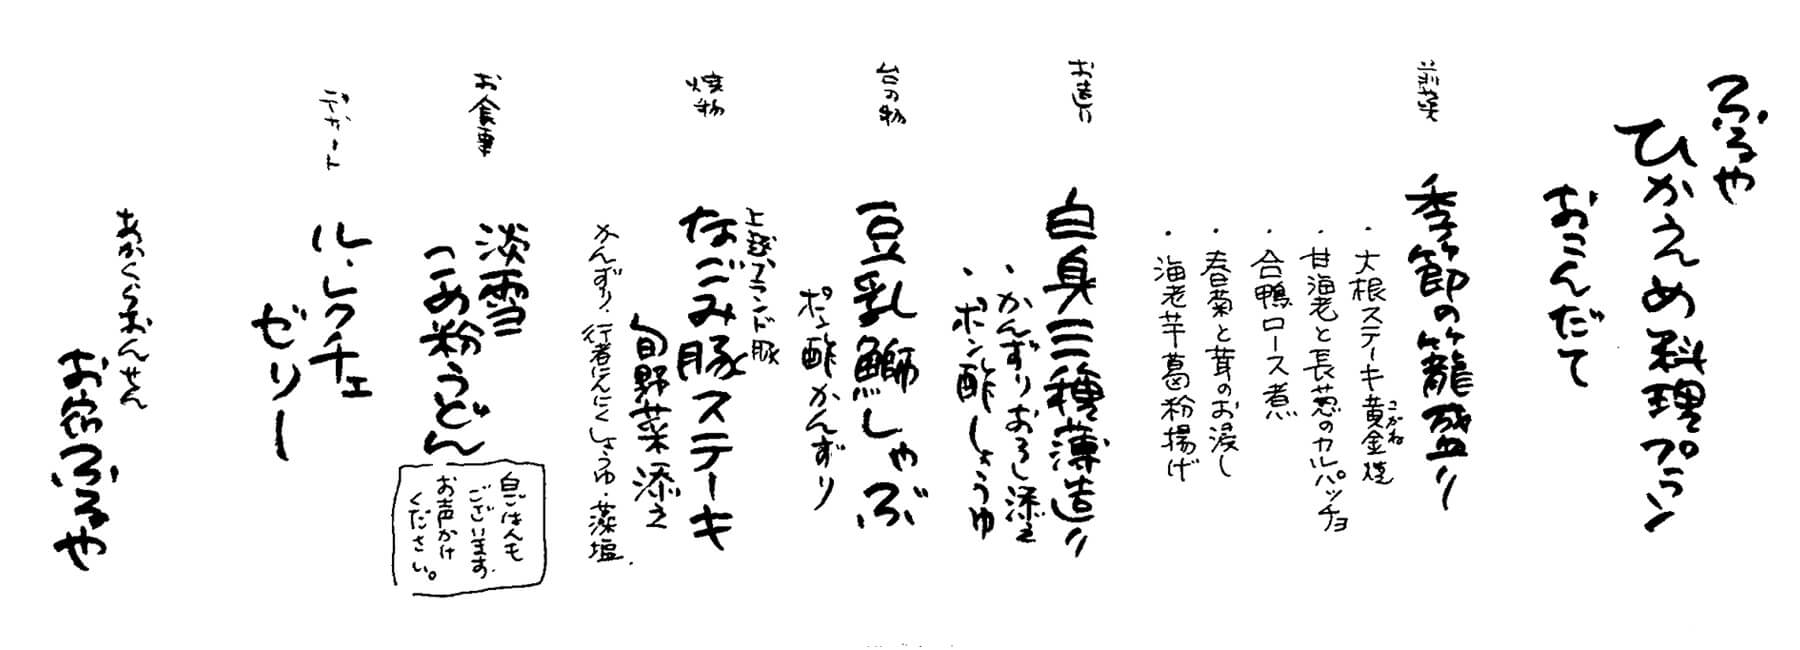 ふるや
ひかえめ料理プラン
おこんだて
前菜
季節の籠盛り
・大根ステーキ黄金焼
こがね
・甘海老と長葱のカルパッチョ
・合鴨ロース煮
・春菊と茸のお浸し
・海老芋葛粉揚げ
お造り
白身三種薄造り
・かんずりおろし添え
・ポン酢しょうゆ
台の物
豆乳鰤しゃぶ
ポン酢かんずり
焼物
上越ブランド豚
なごみ豚ステーキ
旬野菜添え
かんずり・行者にんにくしょうゆ・藻塩
お食事
淡雪
こめ粉うどん
白ごはんも
ございます。
お声かけ
ください。
デザート
ル・レクチェ
ゼリー
あかくらおんせん
お宿ふるや